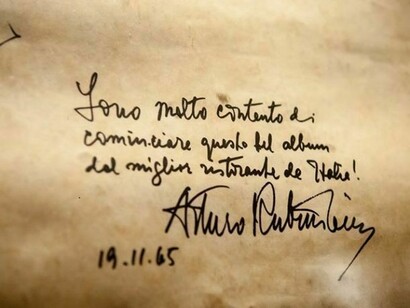 Sono molto contento di
cominciare questo bel album
del miglior ristorante de Italia!
Arturo Rubinstein
19.11.65